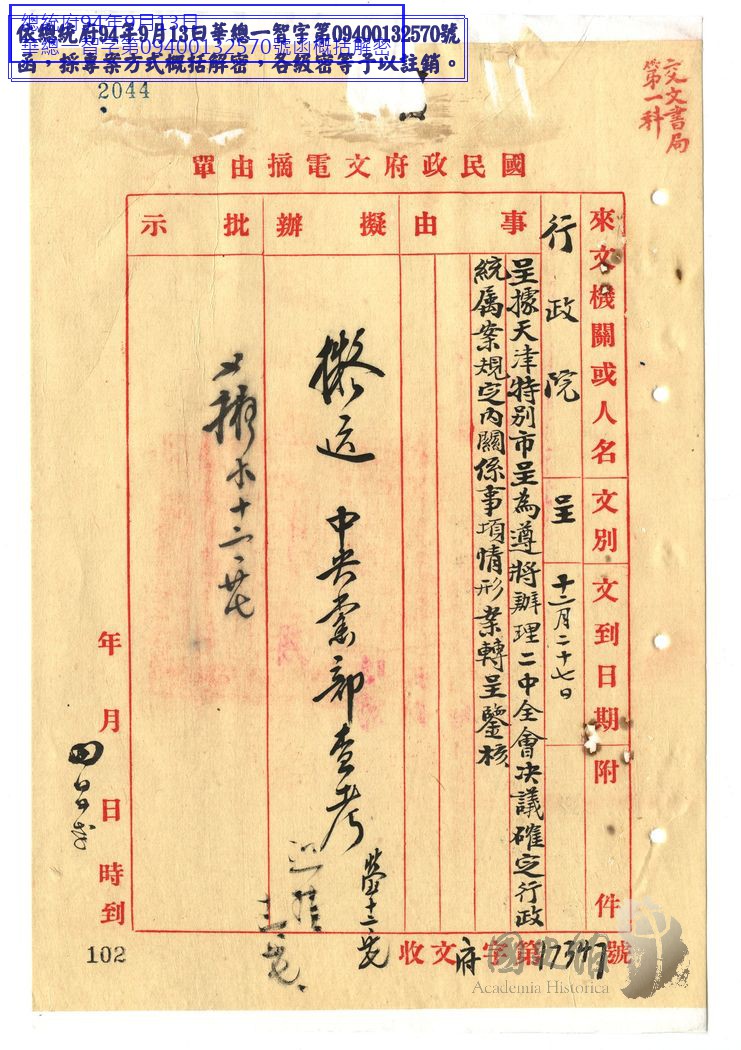 總統府94年9月13日
華總一智字第09400132570號函概括解密
依總統府94年9月13日華總一智字第09400132570號
函，採專案方式概括解密，各級密等予以註銷。
2044
交文書局
第一科
國民政府文電摘由單
來文機關或人名
行政院
文別
呈
文到日期
十二月二十七日
附件
事由
呈據天津特別市呈為遵將辦理二中全會決議確定行政
統属案規定內關係事項情形案轉呈鑒核
擬辦
擬送 中央黨部查考
批示
年月日時到
收文府字第17347號
102
國史館
Academia Historica